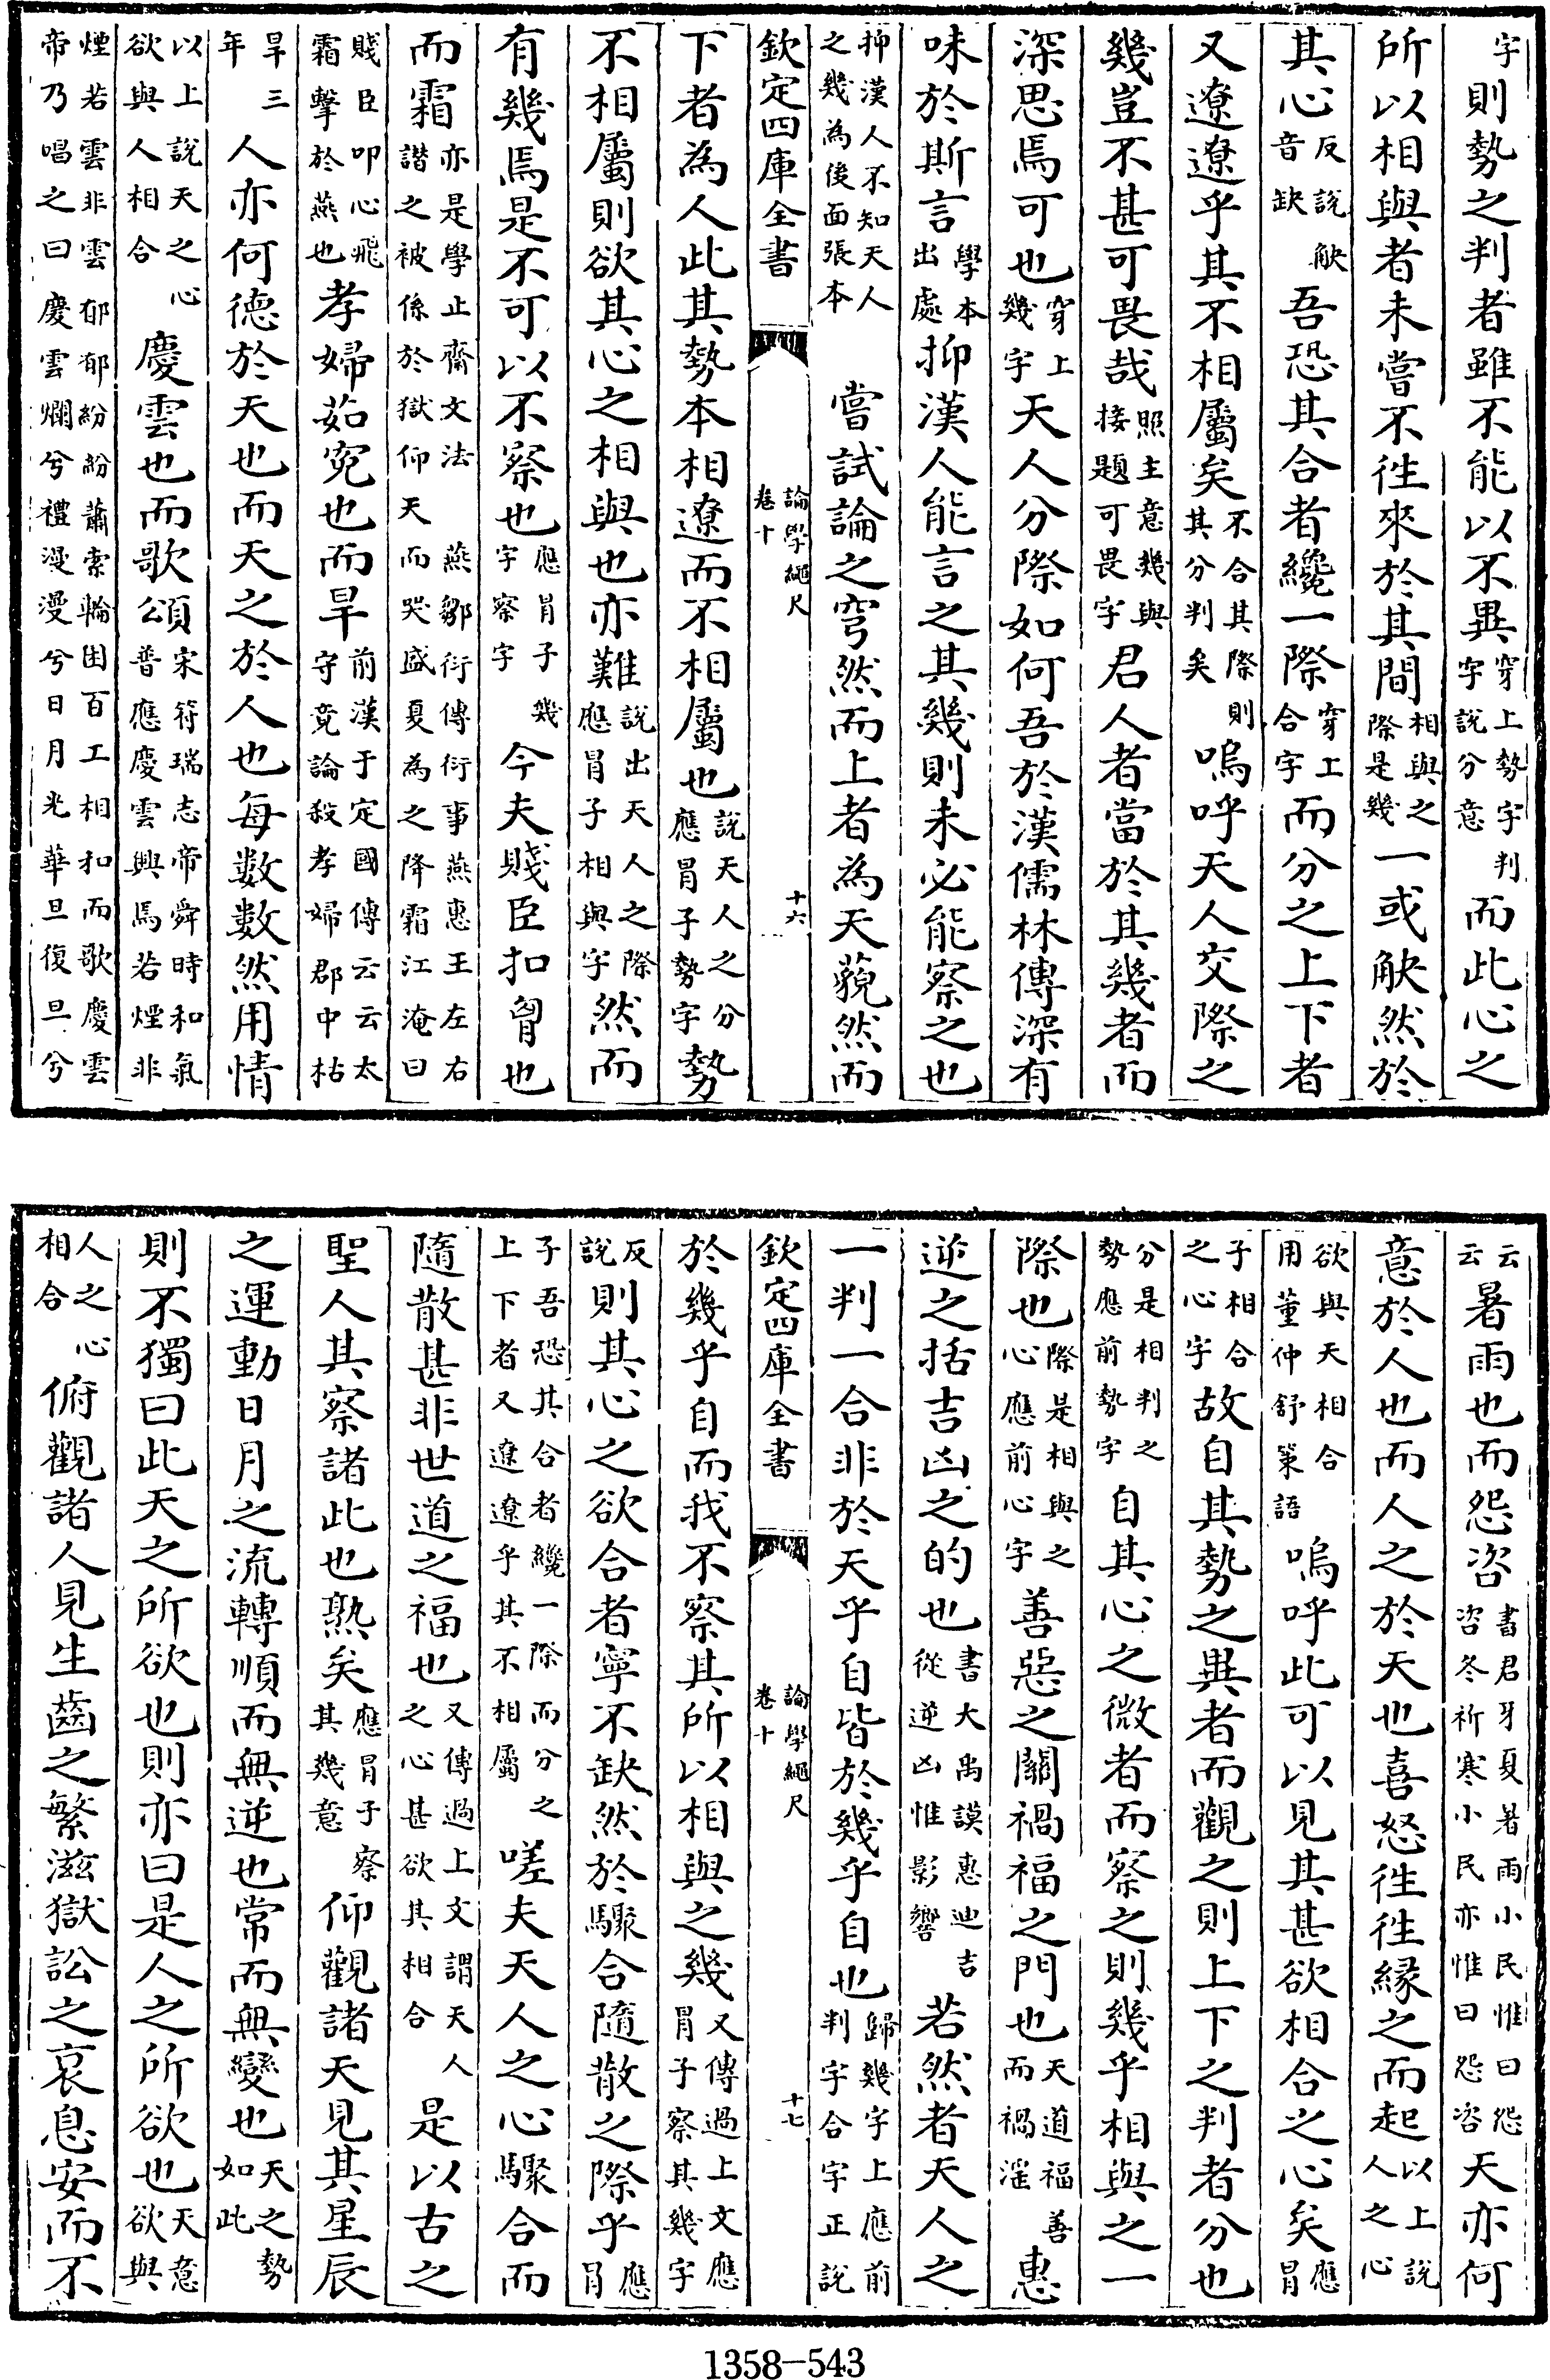 字則勢之判者雖不能以不異穿上勢字判字說分意而此心之
所以相與者未嘗不徃來於其間相與之際是幾一或觖然於
其心反說觖音缺吾恐其合者纔一際穿上合字而分之上下者
又遼遼乎其不相屬矣不合其際則其分判矣嗚呼天人交際之
幾豈不甚可畏哉照主意幾與接題可畏字君人者當於其幾者而
深思焉可也穿上幾字天人分際如何吾於漢儒林傳深有
味於斯言學本出處抑漢人能言之其幾則未必能察之也
抑漢人不知天人之幾為後面張本嘗試論之穹然而上者為天藐然而
欽定四庫全書 論學繩尺 卷十 十六
下者為人此其勢本相遼而不相屬也說天人之分應冒子勢字勢
不相屬則欲其心之相與也亦難說出天人之際應冒子相與字然而
有幾焉是不可以不察也應冒子幾字察字今夫賤臣扣胷也
而霜亦是學止齋文法諧之被係於獄仰天 燕鄒衍傳衍事燕惠王左右而哭盛夏為之降霜江淹曰
賤臣叩心飛霜擊於燕也孝婦茹寃也而旱前漢于定國傳云云太守竟論殺孝婦郡中枯
旱三年人亦何德於天也而天之於人也每數數然用情
以上說天之心欲與人相合慶雲也而歌頌宋符瑞志帝舜時和氣普應慶雲興焉若煙非
煙若雲非雲郁郁紛紛蕭索輪囷百工相和而歌慶雲帝乃唱之曰慶雲爛兮禮漫漫兮日月光華旦復旦兮
云云暑雨也而怨咨書君牙夏暑雨小民惟曰怨咨冬祈寒小民亦惟曰怨咨天亦何
意於人也而人之於天也喜怒徃徃緣之而起以上說人之心
欲與天相合用董仲舒策語嗚呼此可以見其甚欲相合之心矣應冒
子相合之心字故自其勢之異者而觀之則上下之判者分也
分是相判之勢應前勢字自其心之微者而察之則幾乎相與之一
際也際是相與之心應前心字善惡之關禍福之門也天道福善而禍滛惠
逆之括吉凶之的也書大禹謨惠迪吉從逆凶惟影響若然者天人之
一判一合非於天乎自皆於幾乎自也歸幾字上應前判字合字正說
欽定四庫全書 論學繩尺 卷十 十七
於幾乎自而我不察其所以相與之幾又傳過上文應冒子察其幾字
反說則其心之欲合者寧不缺然於驟合隨散之際乎應冒
子吾恐其合者纔一際而分之上下者又遼遼乎其不相屬嗟夫天人之心驟合而
隨散甚非世道之福也又傳過上文謂天人之心甚欲其相合是以古之
聖人其察諸此也熟矣應冒子察其幾意仰觀諸天見其星辰
之運動日月之流轉順而無逆也常而無變也天之勢如此
則不獨曰此天之所欲也則亦曰是人之所欲也天意欲與
人之心相合俯觀諸人見生齒之繁滋獄訟之哀息安而不
1358-543